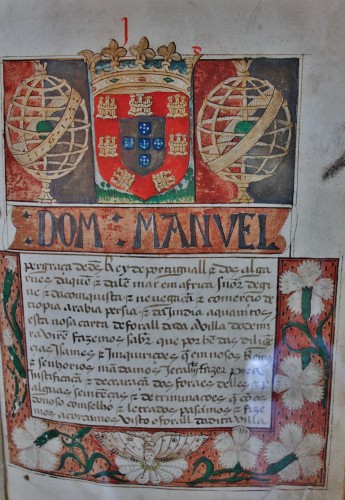 : DOM : MANVEL
per graça de ds Rey de portuguall & dos algar
ues daquẽ & dalẽ mar em africa Sñor de gui
ne & da conquista & nauegaçã & comercio de
tiopia arabia persia & da India aquamtos
esta nosa carta de forall dada A villa dode mi
ra virẽ fazemos saber que por bẽ das dili
çias Isames & Imquirições q̃ em nosos Reinos
& senhorios mãdamos Jerallmẽte fazer pera
Justificaçã & decraraçã dos foraes delles & p
algũas sentenças & determinações q̃ cõ os
do noso comselho & letrados pasamos & feze
mos acordamos visto o forall da dita villa